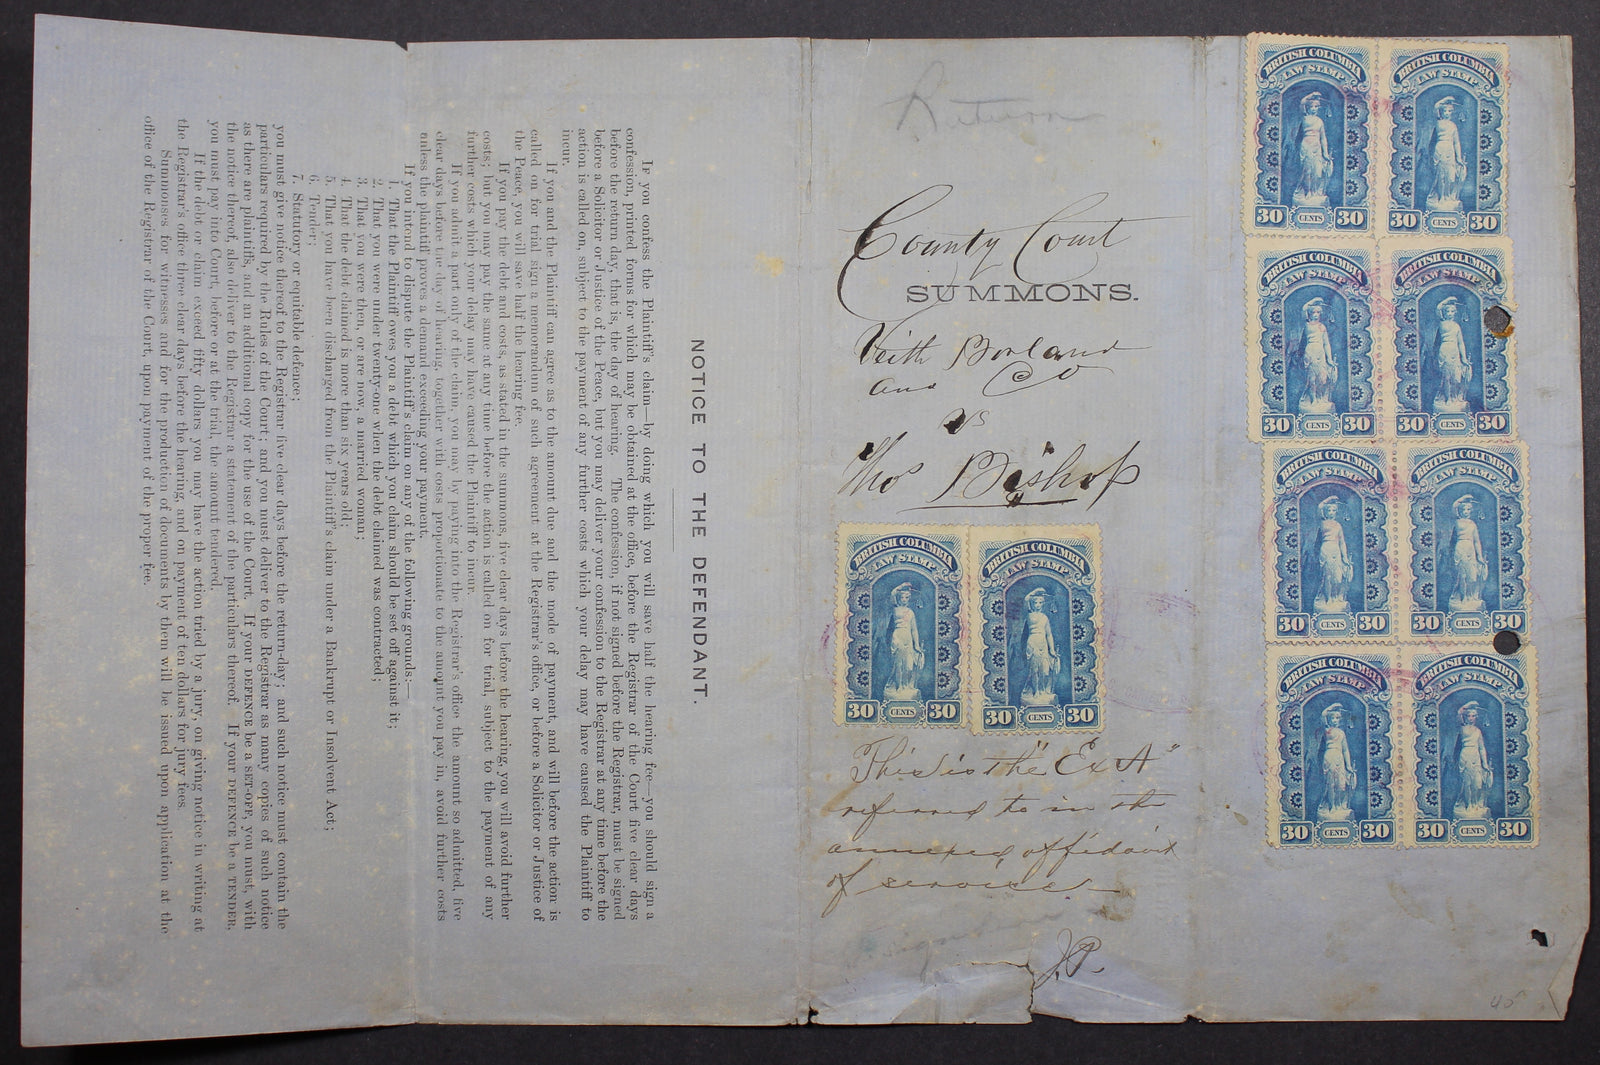 NOTICE TO THE DEFENDANT.
IF you confess the Plaintiff's claim—by doing which you will save half the hearing fee—you should sign a
confession, printed forms for which may be obtained at the office, before the Registrar of the Court five clear days
before the return day, that is, the day of hearing. The confession, if not signed before the Registrar, must be signed
before a Solicitor or Justice of the Peace, but you may deliver your confession to the Registrar at any time before the
action is called on, subject to the payment of any further costs which your delay may have caused the Plaintiff to
incur.
If you and the Plaintiff can agree as to the amount due and the mode of payment, and will before the action is
called on for trial, sign a memorandum of such agreement at the Registrar's office, or before a Solicitor or Justice of
the Peace, you will save half the hearing fee.
If you pay the debt and costs, as stated in the summons, five clear days before the hearing, you will avoid further
costs; but you may pay the same at any time before the action is called on for trial, subject to the payment of any
further costs which your delay may have caused the Plaintiff to incur.
If you admit a part only of the claim, you may by paying into the Registrar's office the amount so admitted, five
clear days before the day of hearing, together with costs proportionate to the amount you pay in, avoid further costs
unless the plaintiff proves a demand exceeding your payment.
If you intend to dispute the Plaintiff's claim on any of the following grounds:—
1. That the Plaintiff owes you a debt which you claim should be set off against it;
2. That you were under twenty-one when the debt claimed was contracted;
3. That you were then, or are now, a married woman;
4. That the debt claimed is more than six years old;
5. That you have been discharged from the Plaintiff's claim under a Bankrupt or Insolvent Act;
6. Tender;
7. Statutory or equitable defence;
you must give notice thereof to the Registrar five clear days before the return-day; and such notice must contain the
particulars required by the Rules of the Court; and you must deliver to the Registrar as many copies of such notice
as there are plaintiffs, and an additional copy for the use of the Court. If your DEFENCE be a SET-OFF, you must, with
the notice thereof, also deliver to the Registrar a statement of the particulars thereof. If your DEFENCE be a TENDER,
you must pay into Court, before or at the trial, the amount tendered.
If the debt or claim exceed fifty dollars you may have the action tried by a jury, on giving notice in writing at
the Registrar's office three clear days before the hearing, and on payment of ten dollars for jury fees.
Summonses for witnesses and for the production of documents by them will be issued upon application at the
office of the Registrar of the Court, upon payment of the proper fee.
Return
County Court
SUMMONS.
Veith Borland
and Co
vs
Thos Bishop
BRITISH COLUMBIA
LAW STAMP
30 CENTS 30
BRITISH COLUMBIA
LAW STAMP
30 CENTS 30
This is the "Ex A"
referred to in the
annexed affidavit
of service
J.P.
BRITISH COLUMBIA
LAW STAMP
30 CENTS 30
BRITISH COLUMBIA
LAW STAMP
30 CENTS 30
BRITISH COLUMBIA
LAW STAMP
30 CENTS 30
BRITISH COLUMBIA
LAW STAMP
30 CENTS 30
BRITISH COLUMBIA
LAW STAMP
30 CENTS 30
BRITISH COLUMBIA
LAW STAMP
30 CENTS 30
BRITISH COLUMBIA
LAW STAMP
30 CENTS 30
BRITISH COLUMBIA
LAW STAMP
30 CENTS 30